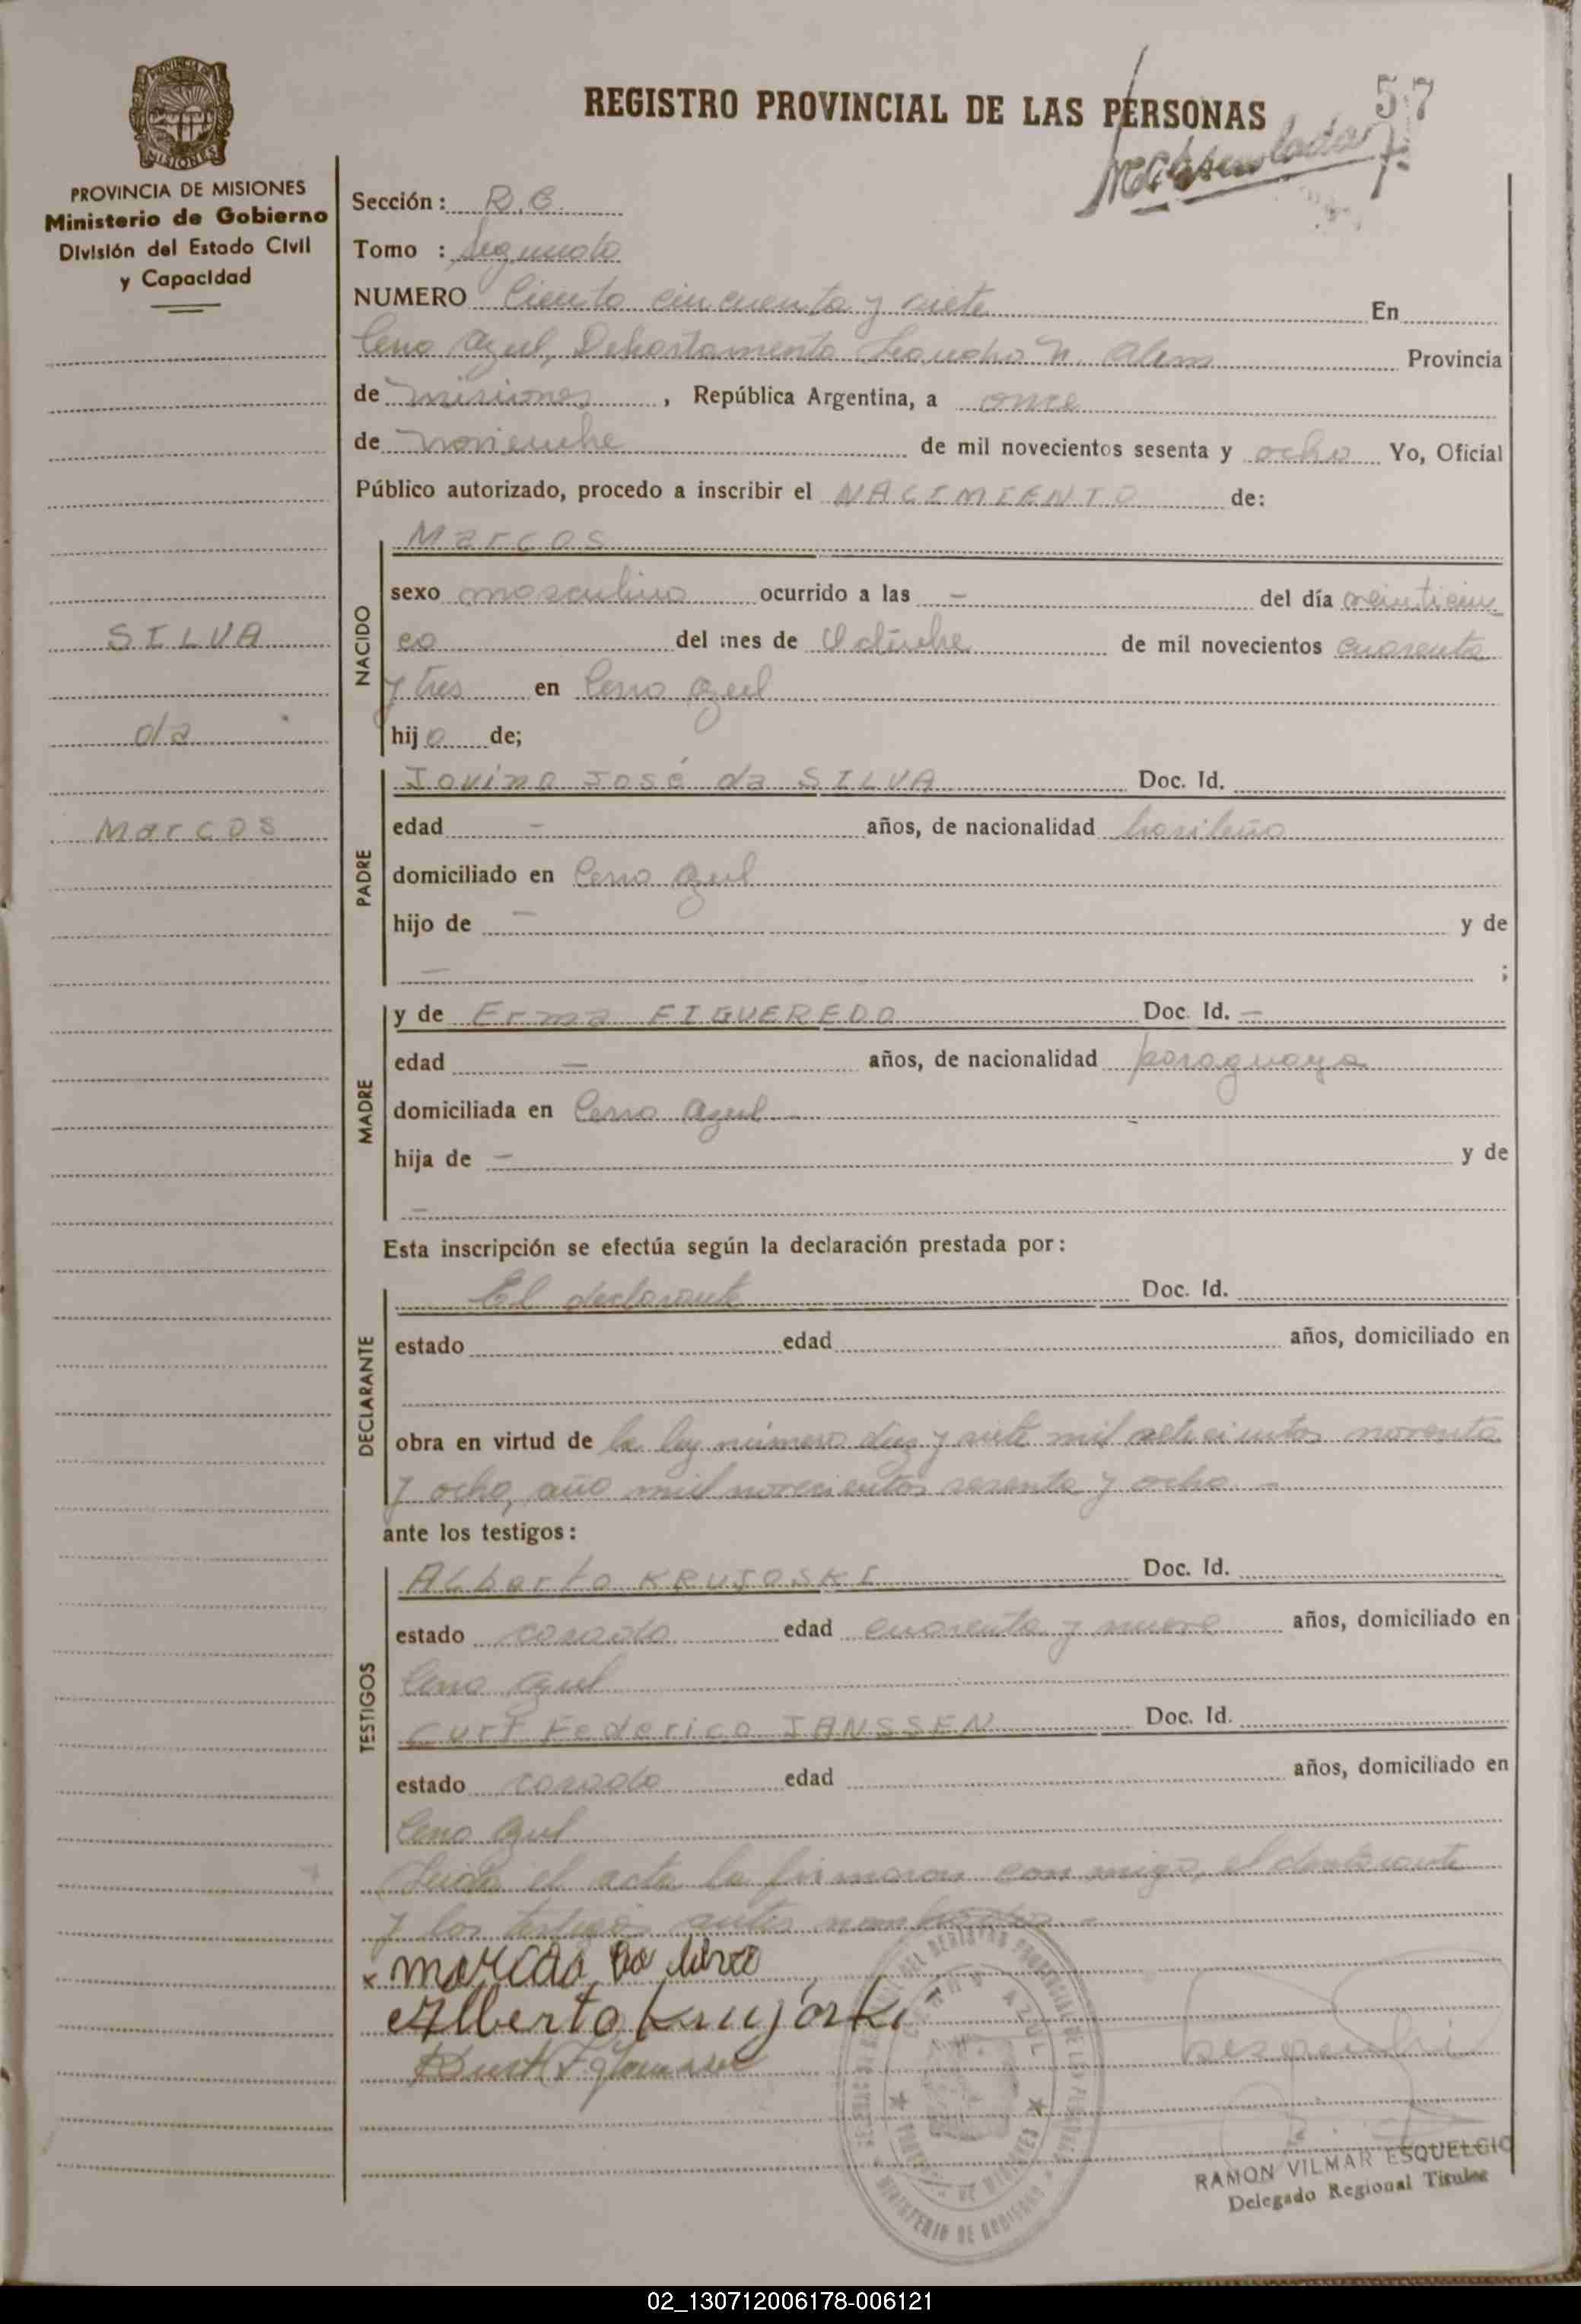 REGISTRO PROVINCIAL DE LAS PERSONAS
57
PROVINCIA DE MISIONES
Ministerio de Gobierno
División del Estado Civil
y Capacidad
SILVA
da
Marcos
Sección: R.C.
Tomo : Segundo
NUMERO Ciento cincuenta y siete En
Cerro Azul, Departamento Leandro N. Alem Provincia
de Misiones, República Argentina, a once
de noviembre de mil novecientos sesenta y ocho Yo, Oficial
Público autorizado, procedo a inscribir el NACIMIENTO de:
NACIDO
Marcos
sexo masculino ocurrido a las - del día veinticin
co del mes de Octubre de mil novecientos cuarenta
y tres en Cerro Azul
hijo de;
PADRE
Jovino José da SILVA Doc. Id.
edad - años, de nacionalidad brasileño
domiciliado en Cerro Azul
hijo de - y de
- ;
MADRE
y de Erma FIGUEREDO Doc. Id. -
edad - años, de nacionalidad paraguaya
domiciliada en Cerro Azul -
hija de - y de
-
Esta inscripción se efectúa según la declaración prestada por:
DECLARANTE
El declarante Doc. Id.
estado edad años, domiciliado en
obra en virtud de la ley número diez y siete mil setecientos noventa
y ocho, año mil novecientos sesenta y ocho -
ante los testigos:
TESTIGOS
Alberto KRUJOSKI Doc. Id.
estado casado edad cuarenta y nueve años, domiciliado en
Cerro Azul
Curt Federico JANSSEN Doc. Id.
estado casado edad años, domiciliado en
Cerro Azul
Leida el acta la firmaron conmigo, el declarante
y los testigos antes nombrados -
x marcos Da silva
Alberto Krujoski
RAMON VILMAR ESQUELCIO
Delegado Regional Titular
02_130712006178-006121